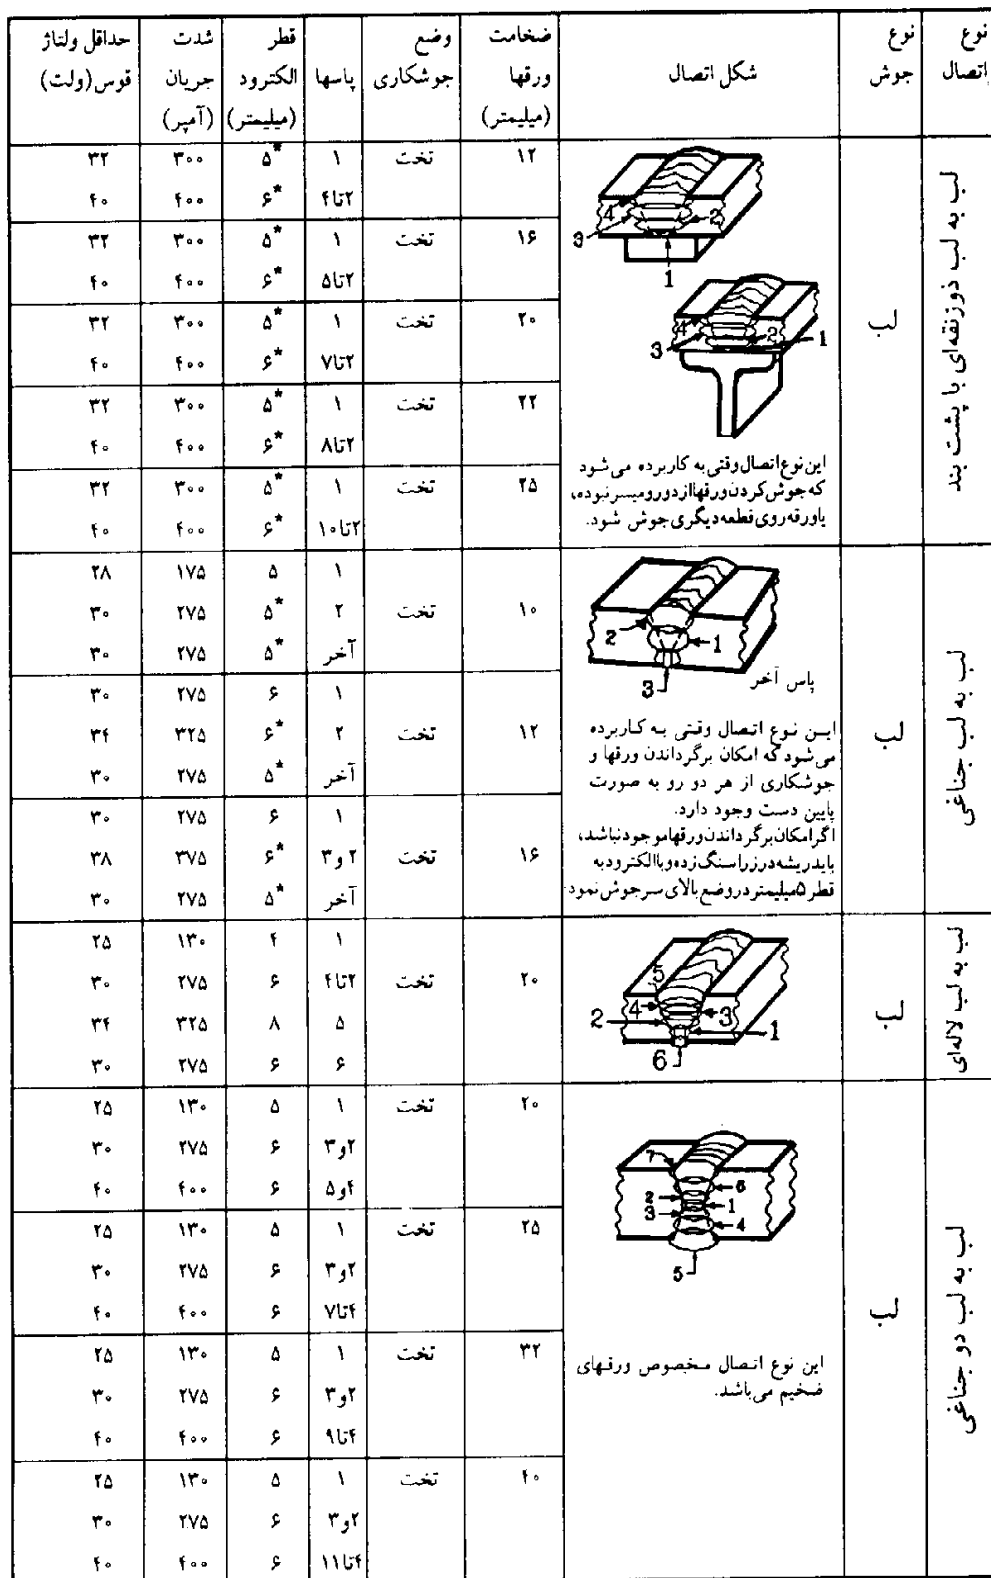 نوع اتصال | نوع جوش | شکل اتصال | ضخامت ورقها (میلیمتر) | وضع جوشکاری | پاسها | قطر الکترود (میلیمتر) | شدت جریان (آمپر) | حداقل ولتاژ قوس (ولت)
لب به لب ذوزنقه‌ای با پشت بند
لب
4 2 3 1
4 2 3 1
این نوع اتصال وقتی به کار برده می‌شود
که جوش کردن ورقها از دو رو میسر نبوده،
یا ورقه روی قطعه دیگری جوش شود.
۱۲ | تخت | ۱ | ۵* | ۳۰۰ | ۳۲
۲تا۴ | ۶* | ۴۰۰ | ۴۰
۱۶ | تخت | ۱ | ۵* | ۳۰۰ | ۳۲
۲تا۵ | ۶* | ۴۰۰ | ۴۰
۲۰ | تخت | ۱ | ۵* | ۳۰۰ | ۳۲
۲تا۷ | ۶* | ۴۰۰ | ۴۰
۲۲ | تخت | ۱ | ۵* | ۳۰۰ | ۳۲
۲تا۸ | ۶* | ۴۰۰ | ۴۰
۲۵ | تخت | ۱ | ۵* | ۳۰۰ | ۳۲
۲تا۱۰ | ۶* | ۴۰۰ | ۴۰
لب به لب جناغی
لب
2 1 3
پاس آخر
این نوع اتصال وقتی به کار برده
می‌شود که امکان برگرداندن ورقها و
جوشکاری از هر دو رو به صورت
پایین دست وجود دارد.
اگر امکان برگرداندن ورقها موجود نباشد،
باید ریشه درز را سنگ زده و با الکترود به
قطر ۵ میلیمتر در وضع بالای سر جوش نمود
۱ | ۵ | ۱۷۵ | ۲۸
۱۰ | تخت | ۲ | ۵* | ۲۷۵ | ۳۰
آخر | ۵* | ۲۷۵ | ۳۰
۱ | ۶ | ۲۷۵ | ۳۰
۱۲ | تخت | ۲ | ۶* | ۳۲۵ | ۳۴
آخر | ۵* | ۲۷۵ | ۳۰
۱ | ۶ | ۲۷۵ | ۳۰
۱۶ | تخت | ۲ و ۳ | ۶* | ۳۷۵ | ۳۸
آخر | ۵* | ۲۷۵ | ۳۰
لب به لب لاله‌ای
لب
5 4 3 2 1 6
۱ | ۴ | ۱۳۰ | ۲۵
۲۰ | تخت | ۲تا۴ | ۶ | ۲۷۵ | ۳۰
۵ | ۸ | ۳۲۵ | ۳۴
۶ | ۶ | ۲۷۵ | ۳۰
لب به لب دو جناغی
لب
7 6 2 1 3 4 5
این نوع اتصال مخصوص ورقهای
ضخیم می‌باشد.
۲۰ | تخت | ۱ | ۵ | ۱۳۰ | ۲۵
۲و۳ | ۶ | ۲۷۵ | ۳۰
۴و۵ | ۶ | ۴۰۰ | ۴۰
۲۵ | تخت | ۱ | ۵ | ۱۳۰ | ۲۵
۲و۳ | ۶ | ۲۷۵ | ۳۰
۴تا۷ | ۶ | ۴۰۰ | ۴۰
۳۲ | تخت | ۱ | ۵ | ۱۳۰ | ۲۵
۲و۳ | ۶ | ۲۷۵ | ۳۰
۴تا۹ | ۶ | ۴۰۰ | ۴۰
۴۰ | تخت | ۱ | ۵ | ۱۳۰ | ۲۵
۲و۳ | ۶ | ۲۷۵ | ۳۰
۴تا۱۱ | ۶ | ۴۰۰ | ۴۰